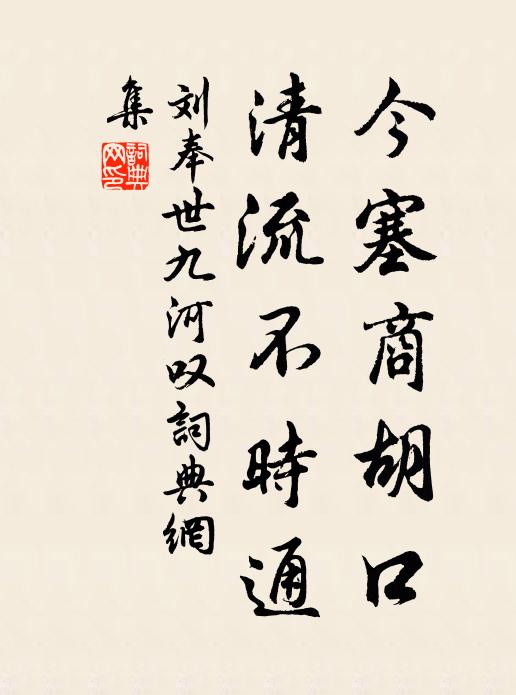 今塞商胡口
清流不時通
刘奉世九河叹詞典網
集
詞典
网印